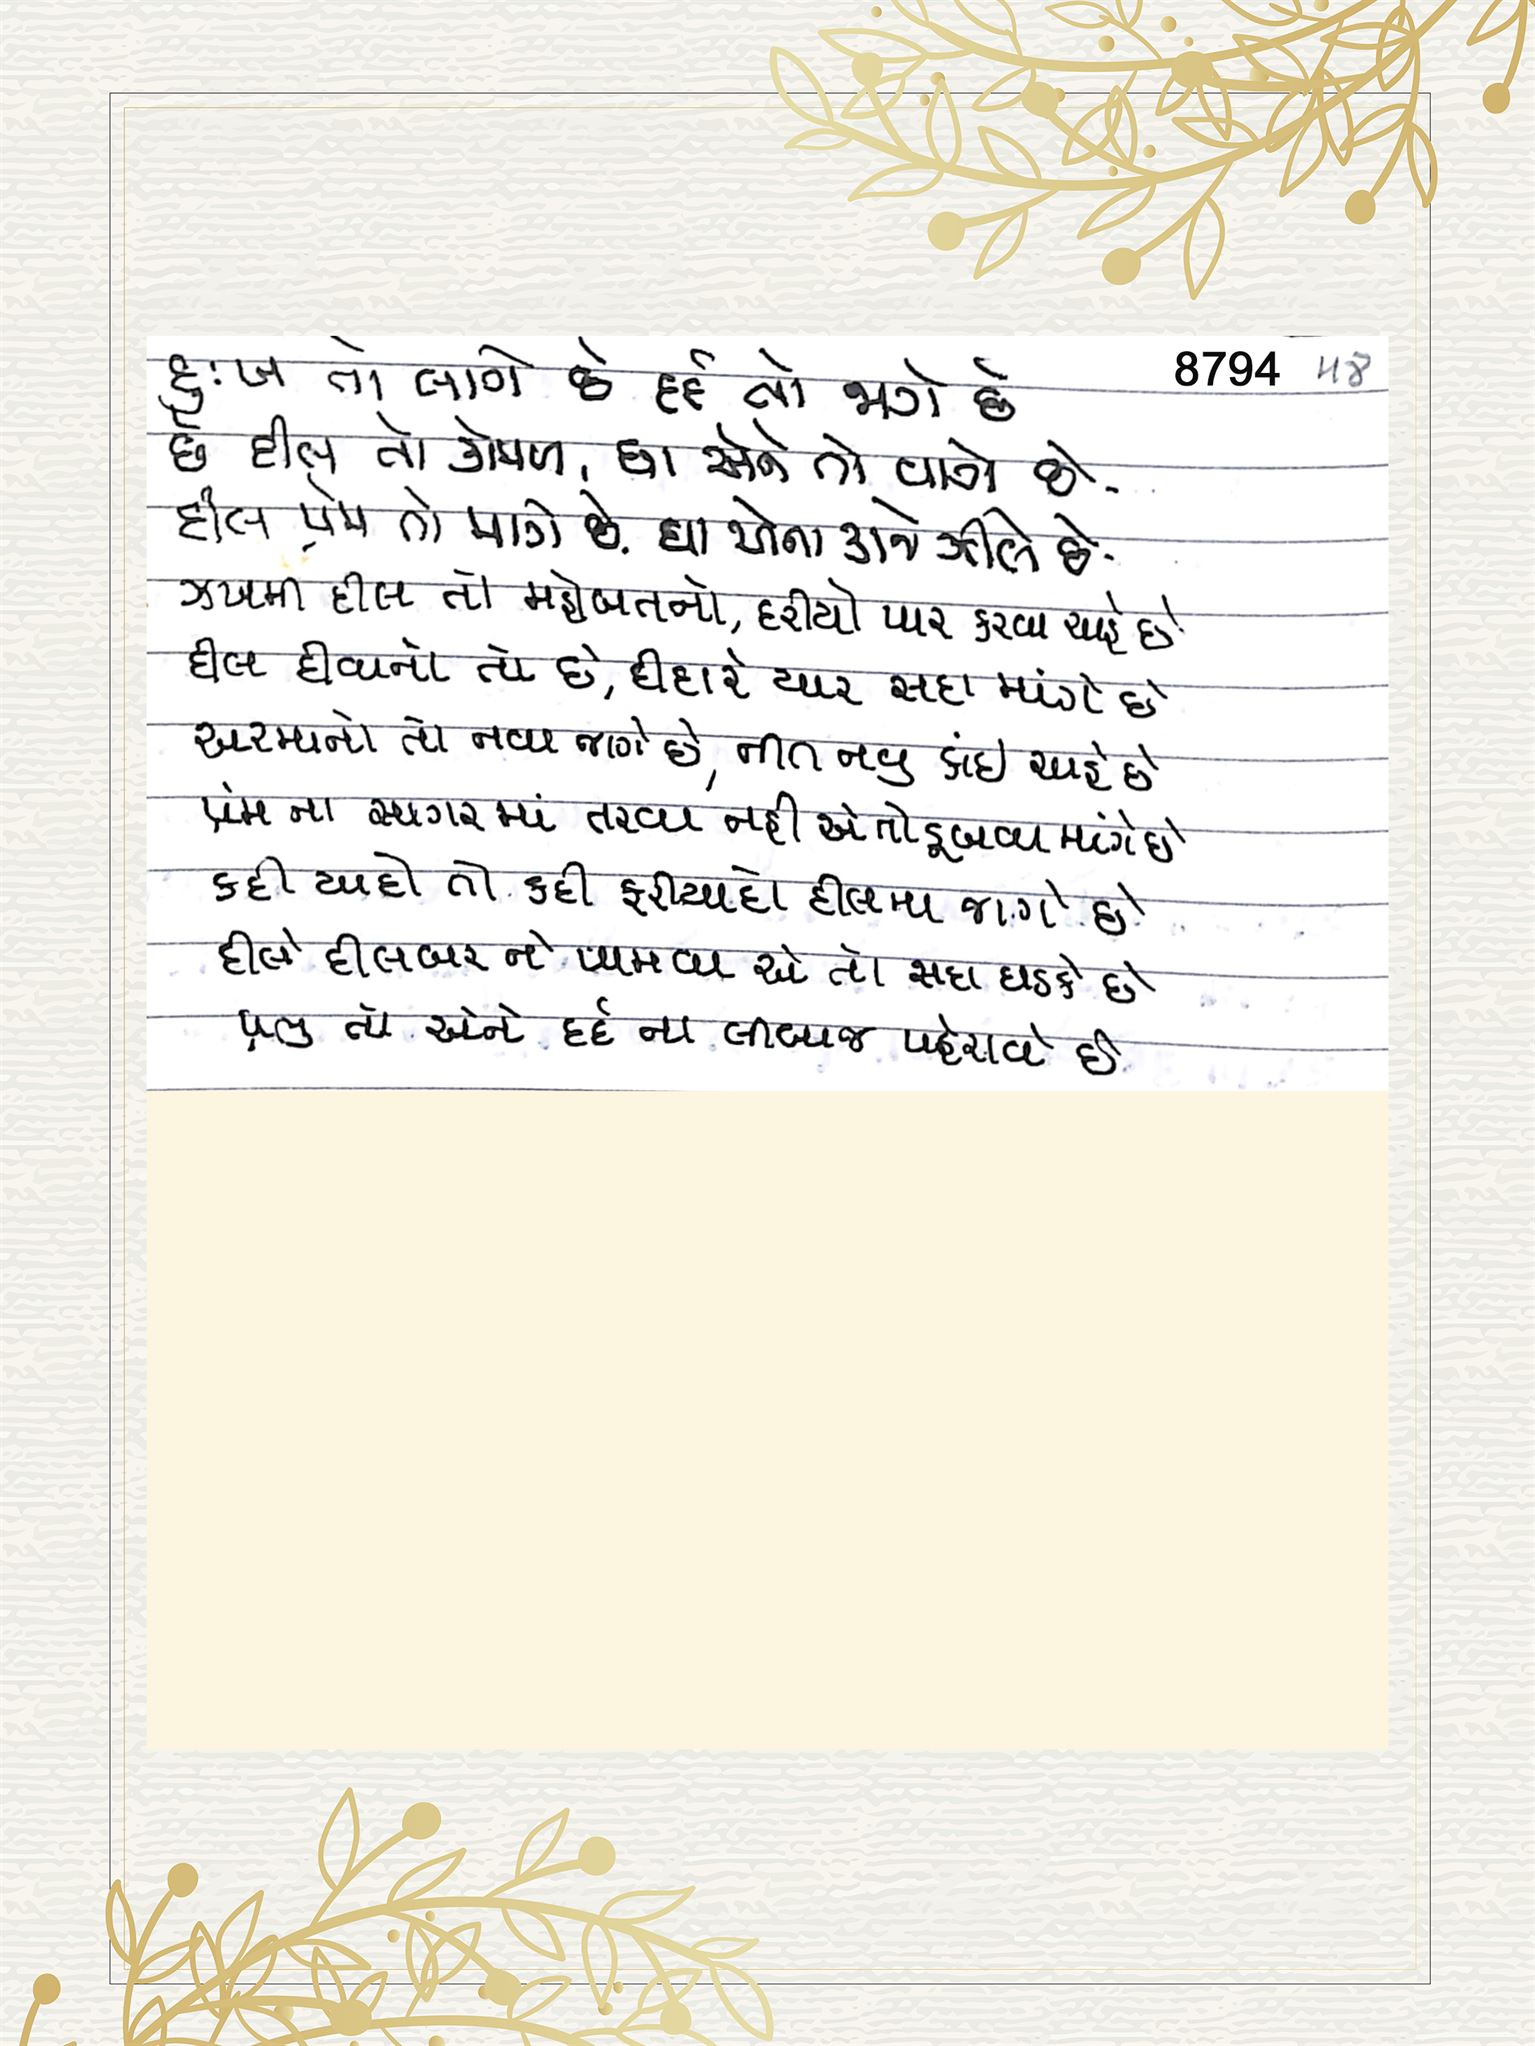 8794 ૫૪
દુઃખ તો લાગે છે દર્દ તો જાગે છે
છે દીલ તો કોમળ, ઘા એને તો વાગે છે.
દીલ પ્રેમ તો માગે છે. ઘા એના કાજે ઝીલે છે.
ઝખમી દીલ તો મહોબતનો, દરીયો પાર કરવા ચાહે છે
દીલ દીવાનો તો છે, દીદારે યાર સદા માંગે છે
અરમાનો તો નવા જાગે છે, નીત નવુ કાંઈ ચાહે છે
પ્રેમ ના સાગર માં તરવા નહી એ તો ડૂબવા માંગે છે
કદી યાદો તો કદી ફરીયાદો દીલમા જાગે છે
દીલે દીલબર ને પામવા એ તો સદા ધડકે છે
પ્રભુ તો એને દર્દ ના લીબાજ પહેરાવે છે